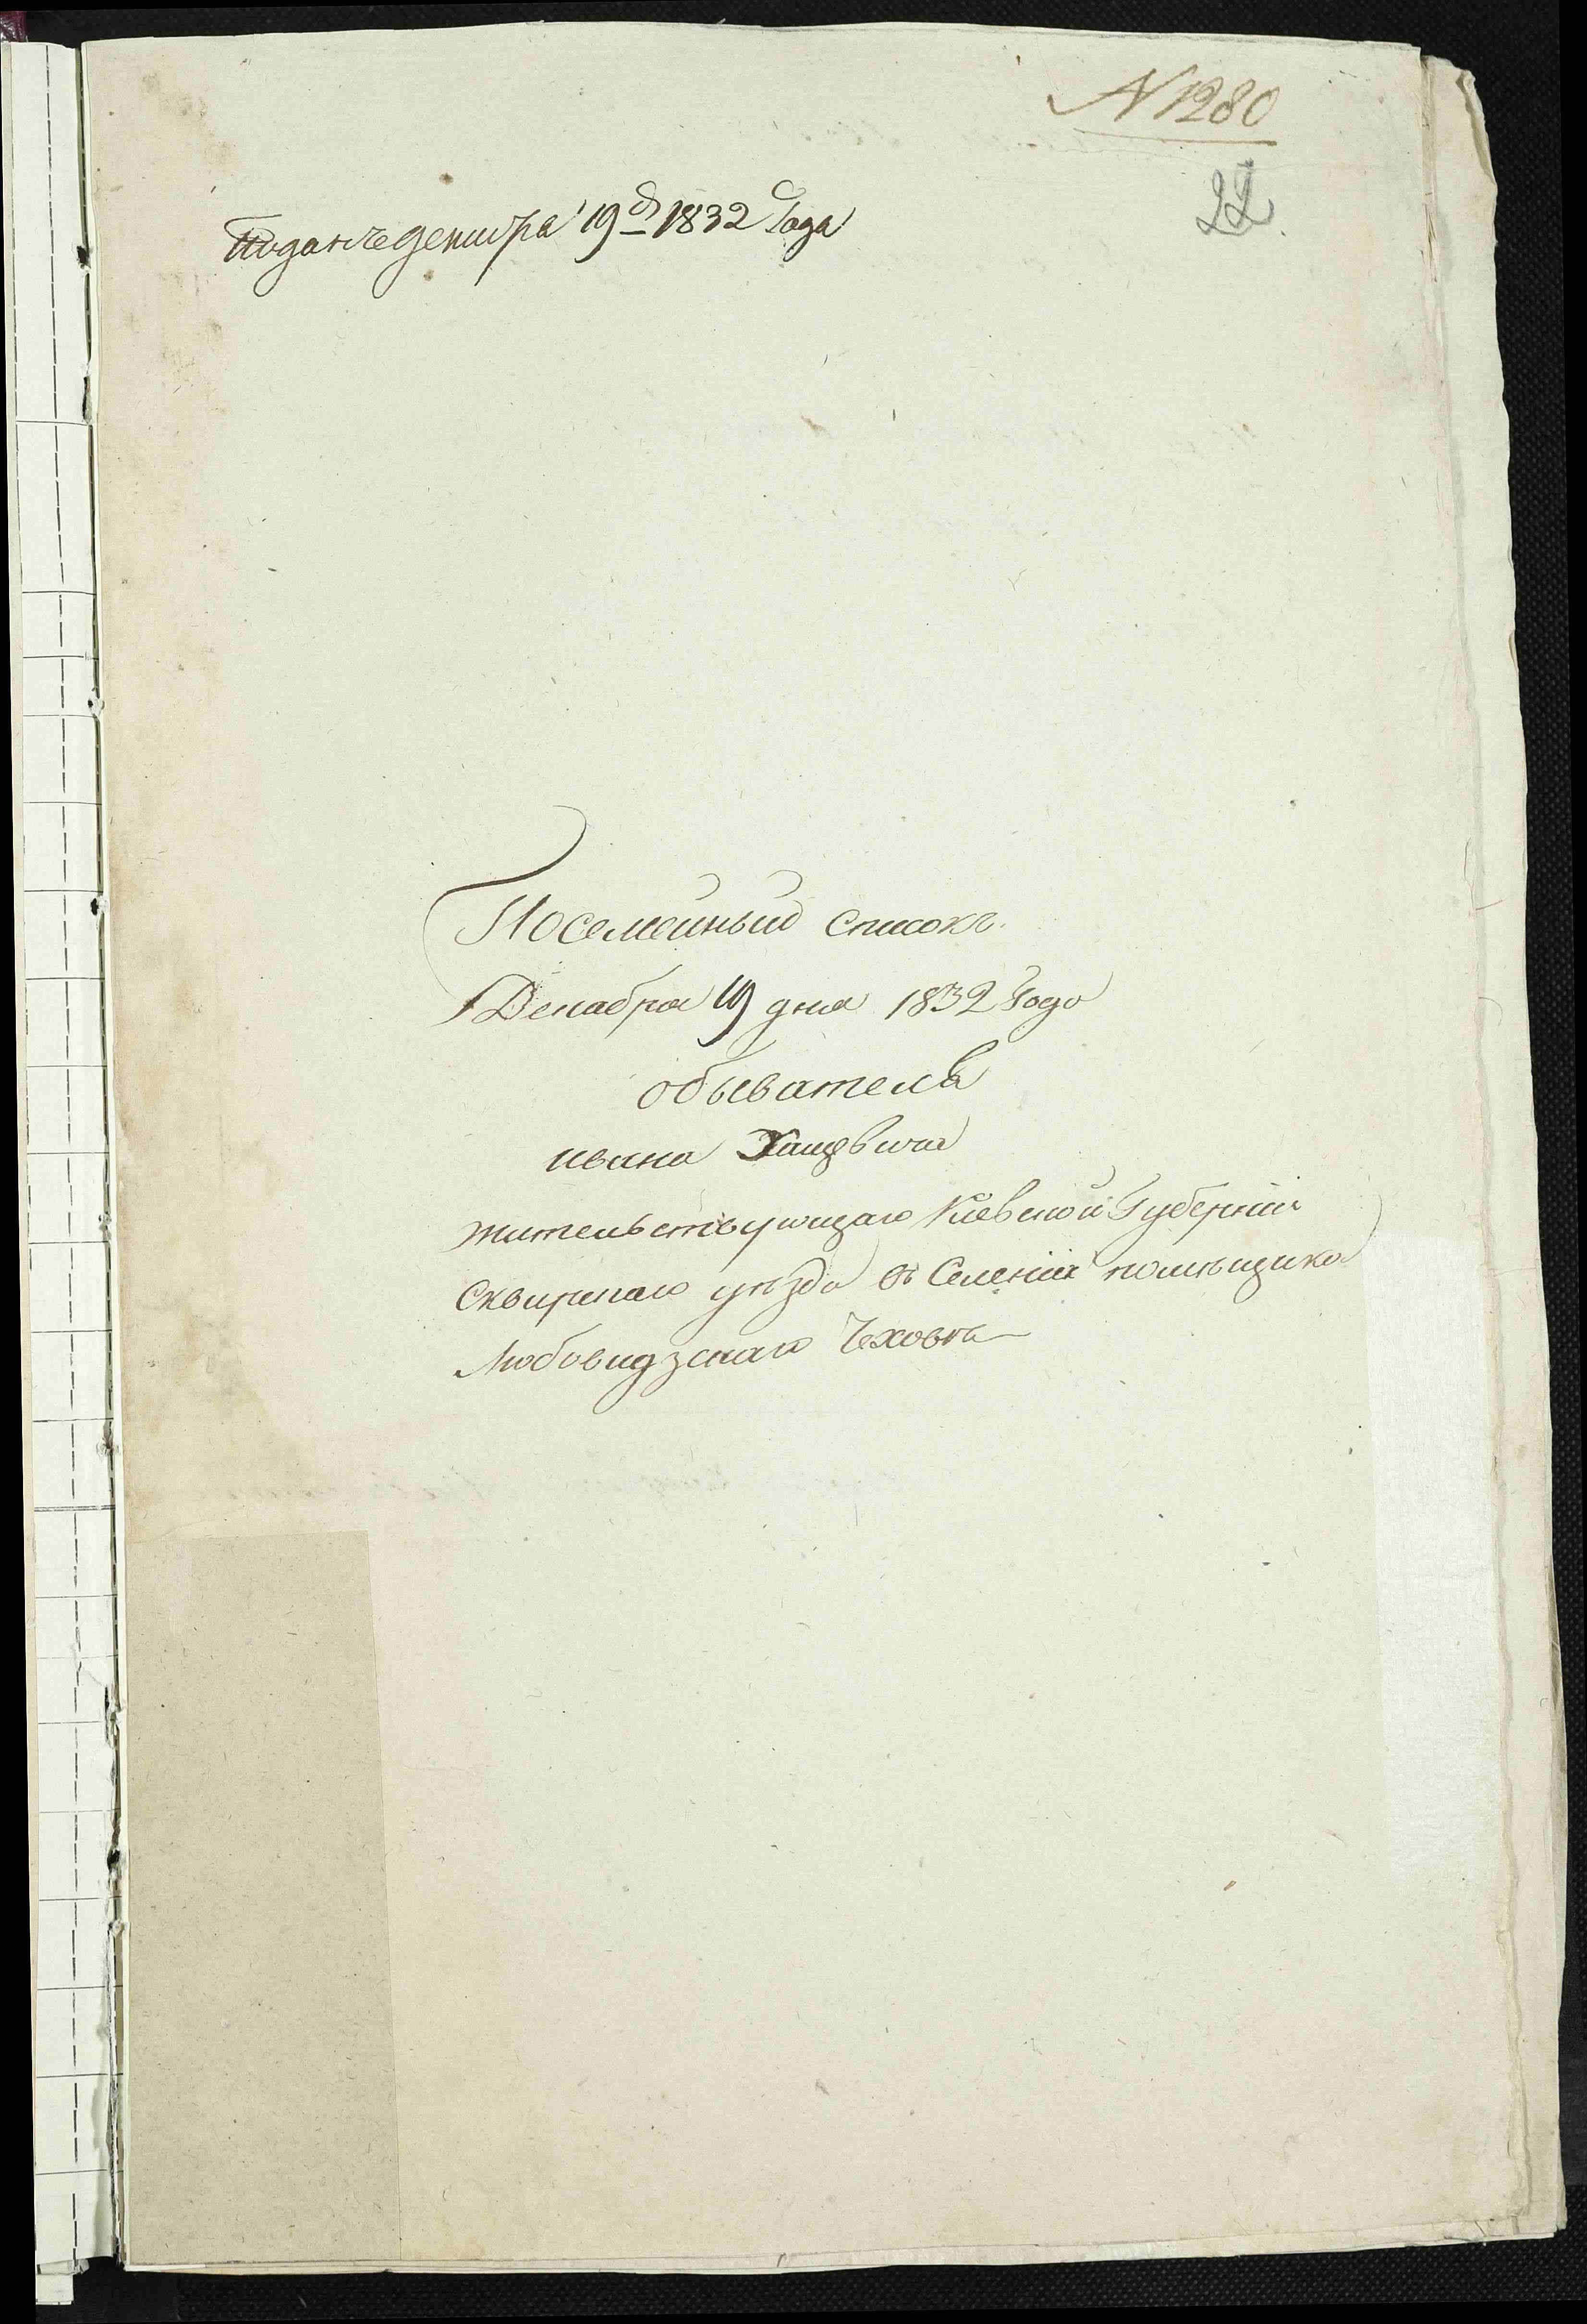 N 1280
22.
Поданъ декабра 19 д 1832 Года
Посемейный списокъ.
Декабря 19 дня 1832 Года
обывателя
ивана Ханцевича
жительствующаго Кіевской Губерніи
Сквирскаго уѣзда въ Селеніи помѣщика
Любовидзскаго Чеховкѣ